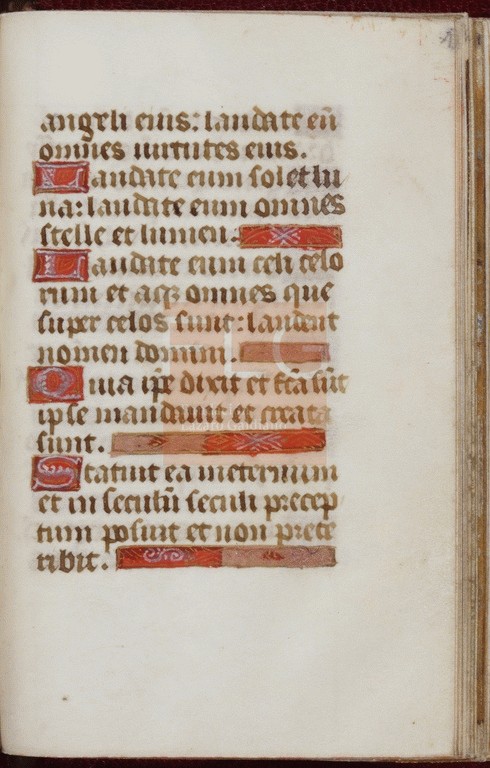 angeli eius: laudate eū
omnes uirtutes eius.
Laudate eum sol et lu
na: laudate eum omnes
stelle et lumen.
Laudate eum celi celo
rum et aq̄ omnes que
super celos sunt: laudent
nomen domini.
Quia ip̄e dixit et fc̄a sūt
ipse mandauit et creata
sunt.
Statuit ea in eternum
et in seculū seculi precep
tum posuit et non prete
ribit.